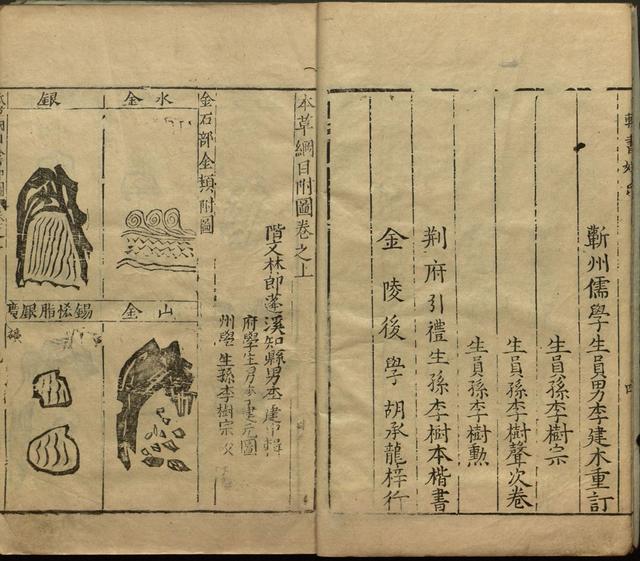 蘄州儒學生員男李建木重訂
生員孫李樹宗
生員孫李樹聲次卷
生員孫李樹勲
荆府引禮生孫李樹本楷書
金陵後學胡承龍梓行
本草綱目附圖卷之上
階文林郎蓬溪知縣男李建中輯
府學生男李建元圖
州學生孫李樹宗校
金石部金類附圖
水金
山金
銀
錫恡脂銀礦